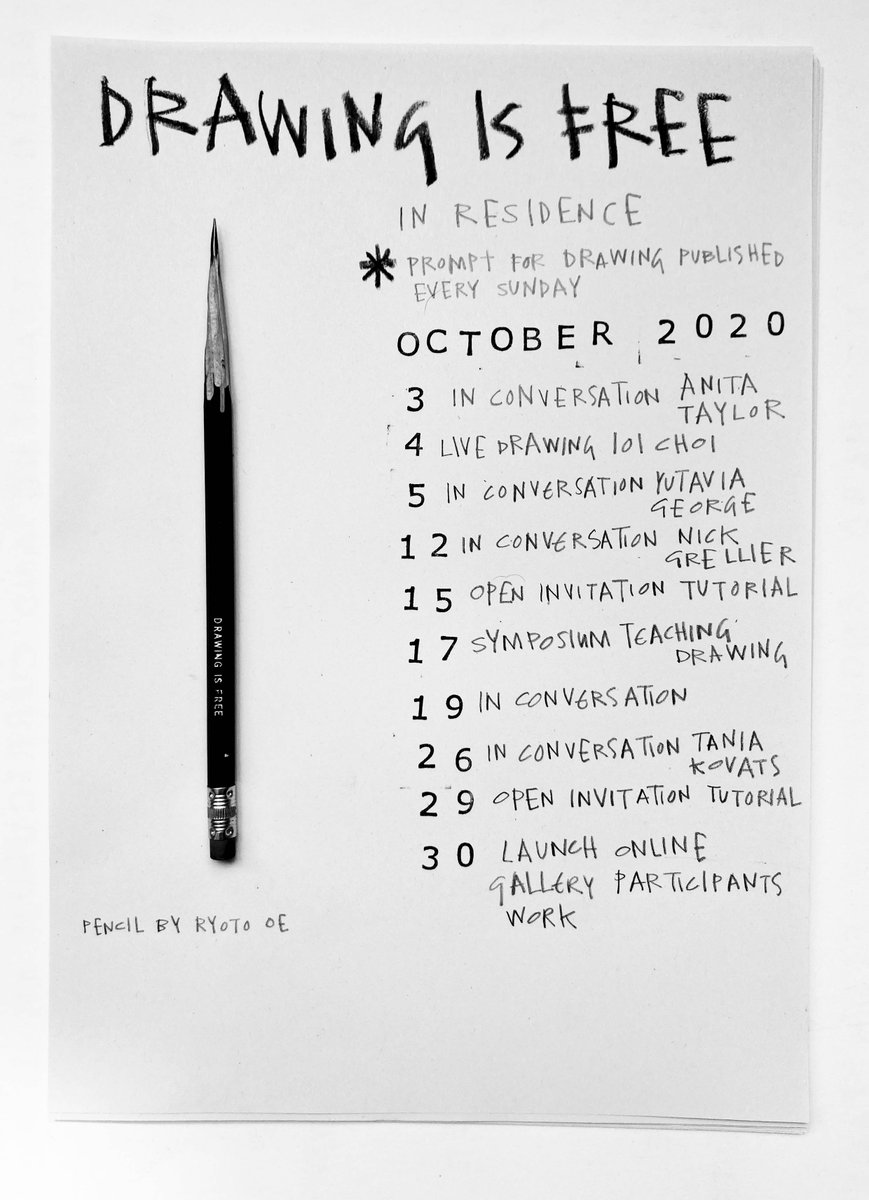 DRAWING IS FREE
IN RESIDENCE
* PROMPT FOR DRAWING PUBLISHED
EVERY SUNDAY
OCTOBER 2020
3 IN CONVERSATION ANITA
TAYLOR
4 LIVE DRAWING 101 CHOI
5 IN CONVERSATION YUTAVIA
GEORGE
12 IN CONVERSATION NICK
GRELLIER
15 OPEN INVITATION TUTORIAL
17 SYMPOSIUM TEACHING
DRAWING
19 IN CONVERSATION
26 IN CONVERSATION TANIA
KOVATS
29 OPEN INVITATION TUTORIAL
30 LAUNCH ONLINE
GALLERY PARTICIPANTS
WORK
DRAWING IS FREE
PENCIL BY RYOTO OE